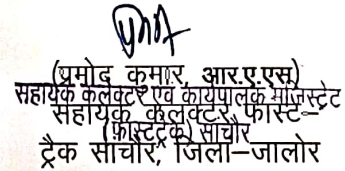 (प्रमोद कुमार, आर.ए.एस)
सहायक कलेक्टर एवं कार्यपालक मजिस्ट्रेट
सहायक कलेक्टर, फास्ट-
(फ़ास्टट्रेक) सांचौर
ट्रैक सांचौर, जिला-जालोर